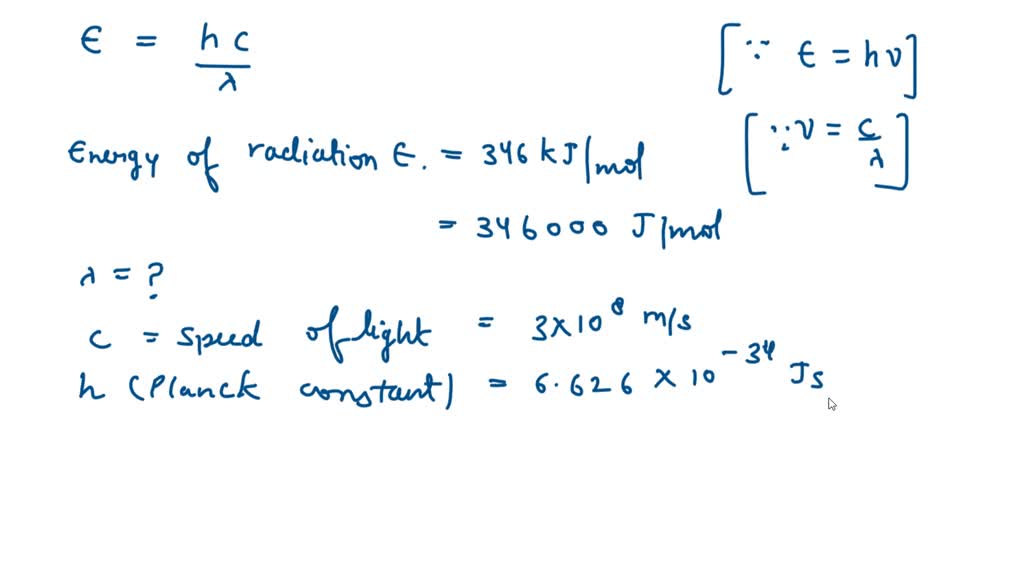 E = hc/λ
[∵ E = hν]
[∵ ν = c/λ]
Energy of radiation E. = 346 kJ/mol
= 346000 J/mol
λ = ?
c = speed of light = 3×10⁸ m/s
h (Planck constant) = 6.626 × 10⁻³⁴ Js